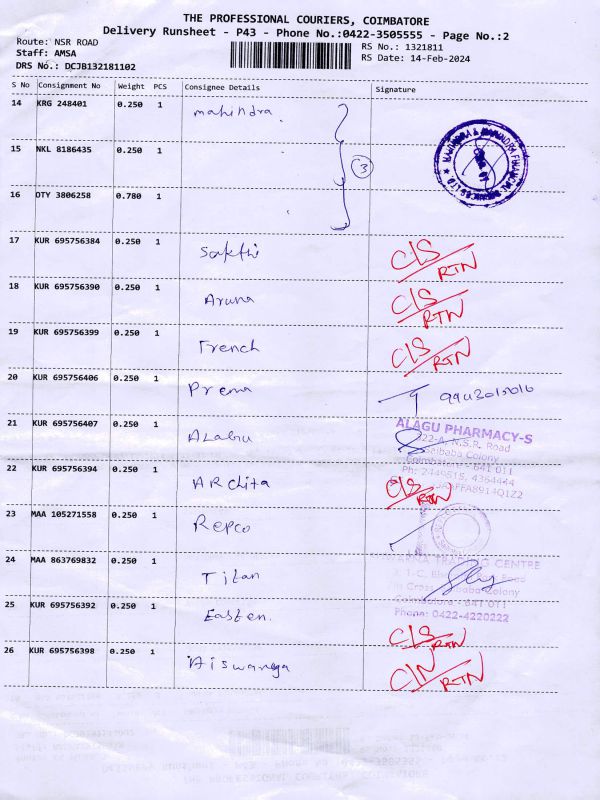 THE PROFESSIONAL COURIERS, COIMBATORE
Delivery Runsheet - P43 - Phone No.:0422-3505555 - Page No.:2
Route: NSR ROAD
RS No.: 1321811
Staff: AMSA
RS Date: 14-Feb-2024
DRS No.: DCJB132181102
S No Consignment No Weight PCS Consignee Details Signature
14 KRG 248401 0.250 1 mahindra
15 NKL 8186435 0.250 1
3
16 DTY 3806258 0.780 1
17 KUR 695756384 0.250 1 Sakthi C/S RTN
18 KUR 695756390 0.250 1 Aruna C/S RTN
19 KUR 695756399 0.250 1 Trench C/S RTN
20 KUR 695756406 0.250 1 Prema
21 KUR 695756407 0.250 1 Alagu
ALAGU PHARMACY-S
N.S.R. Road
Saibaba Colony
Coimbatore - 641 011
Ph: 2440515, 4364444
22 KUR 695756394 0.250 1 ARchita C/S RTN
23 MAA 105271558 0.250 1 Repco
TRADING CENTRE
24 MAA 863769832 0.250 1 Titan
Road
Colony
Coimbatore - 641 011
Phone: 0422-4220222
25 KUR 695756392 0.250 1 Easten. C/S RTN
26 KUR 695756398 0.250 1 Aiswarya C/N RTN